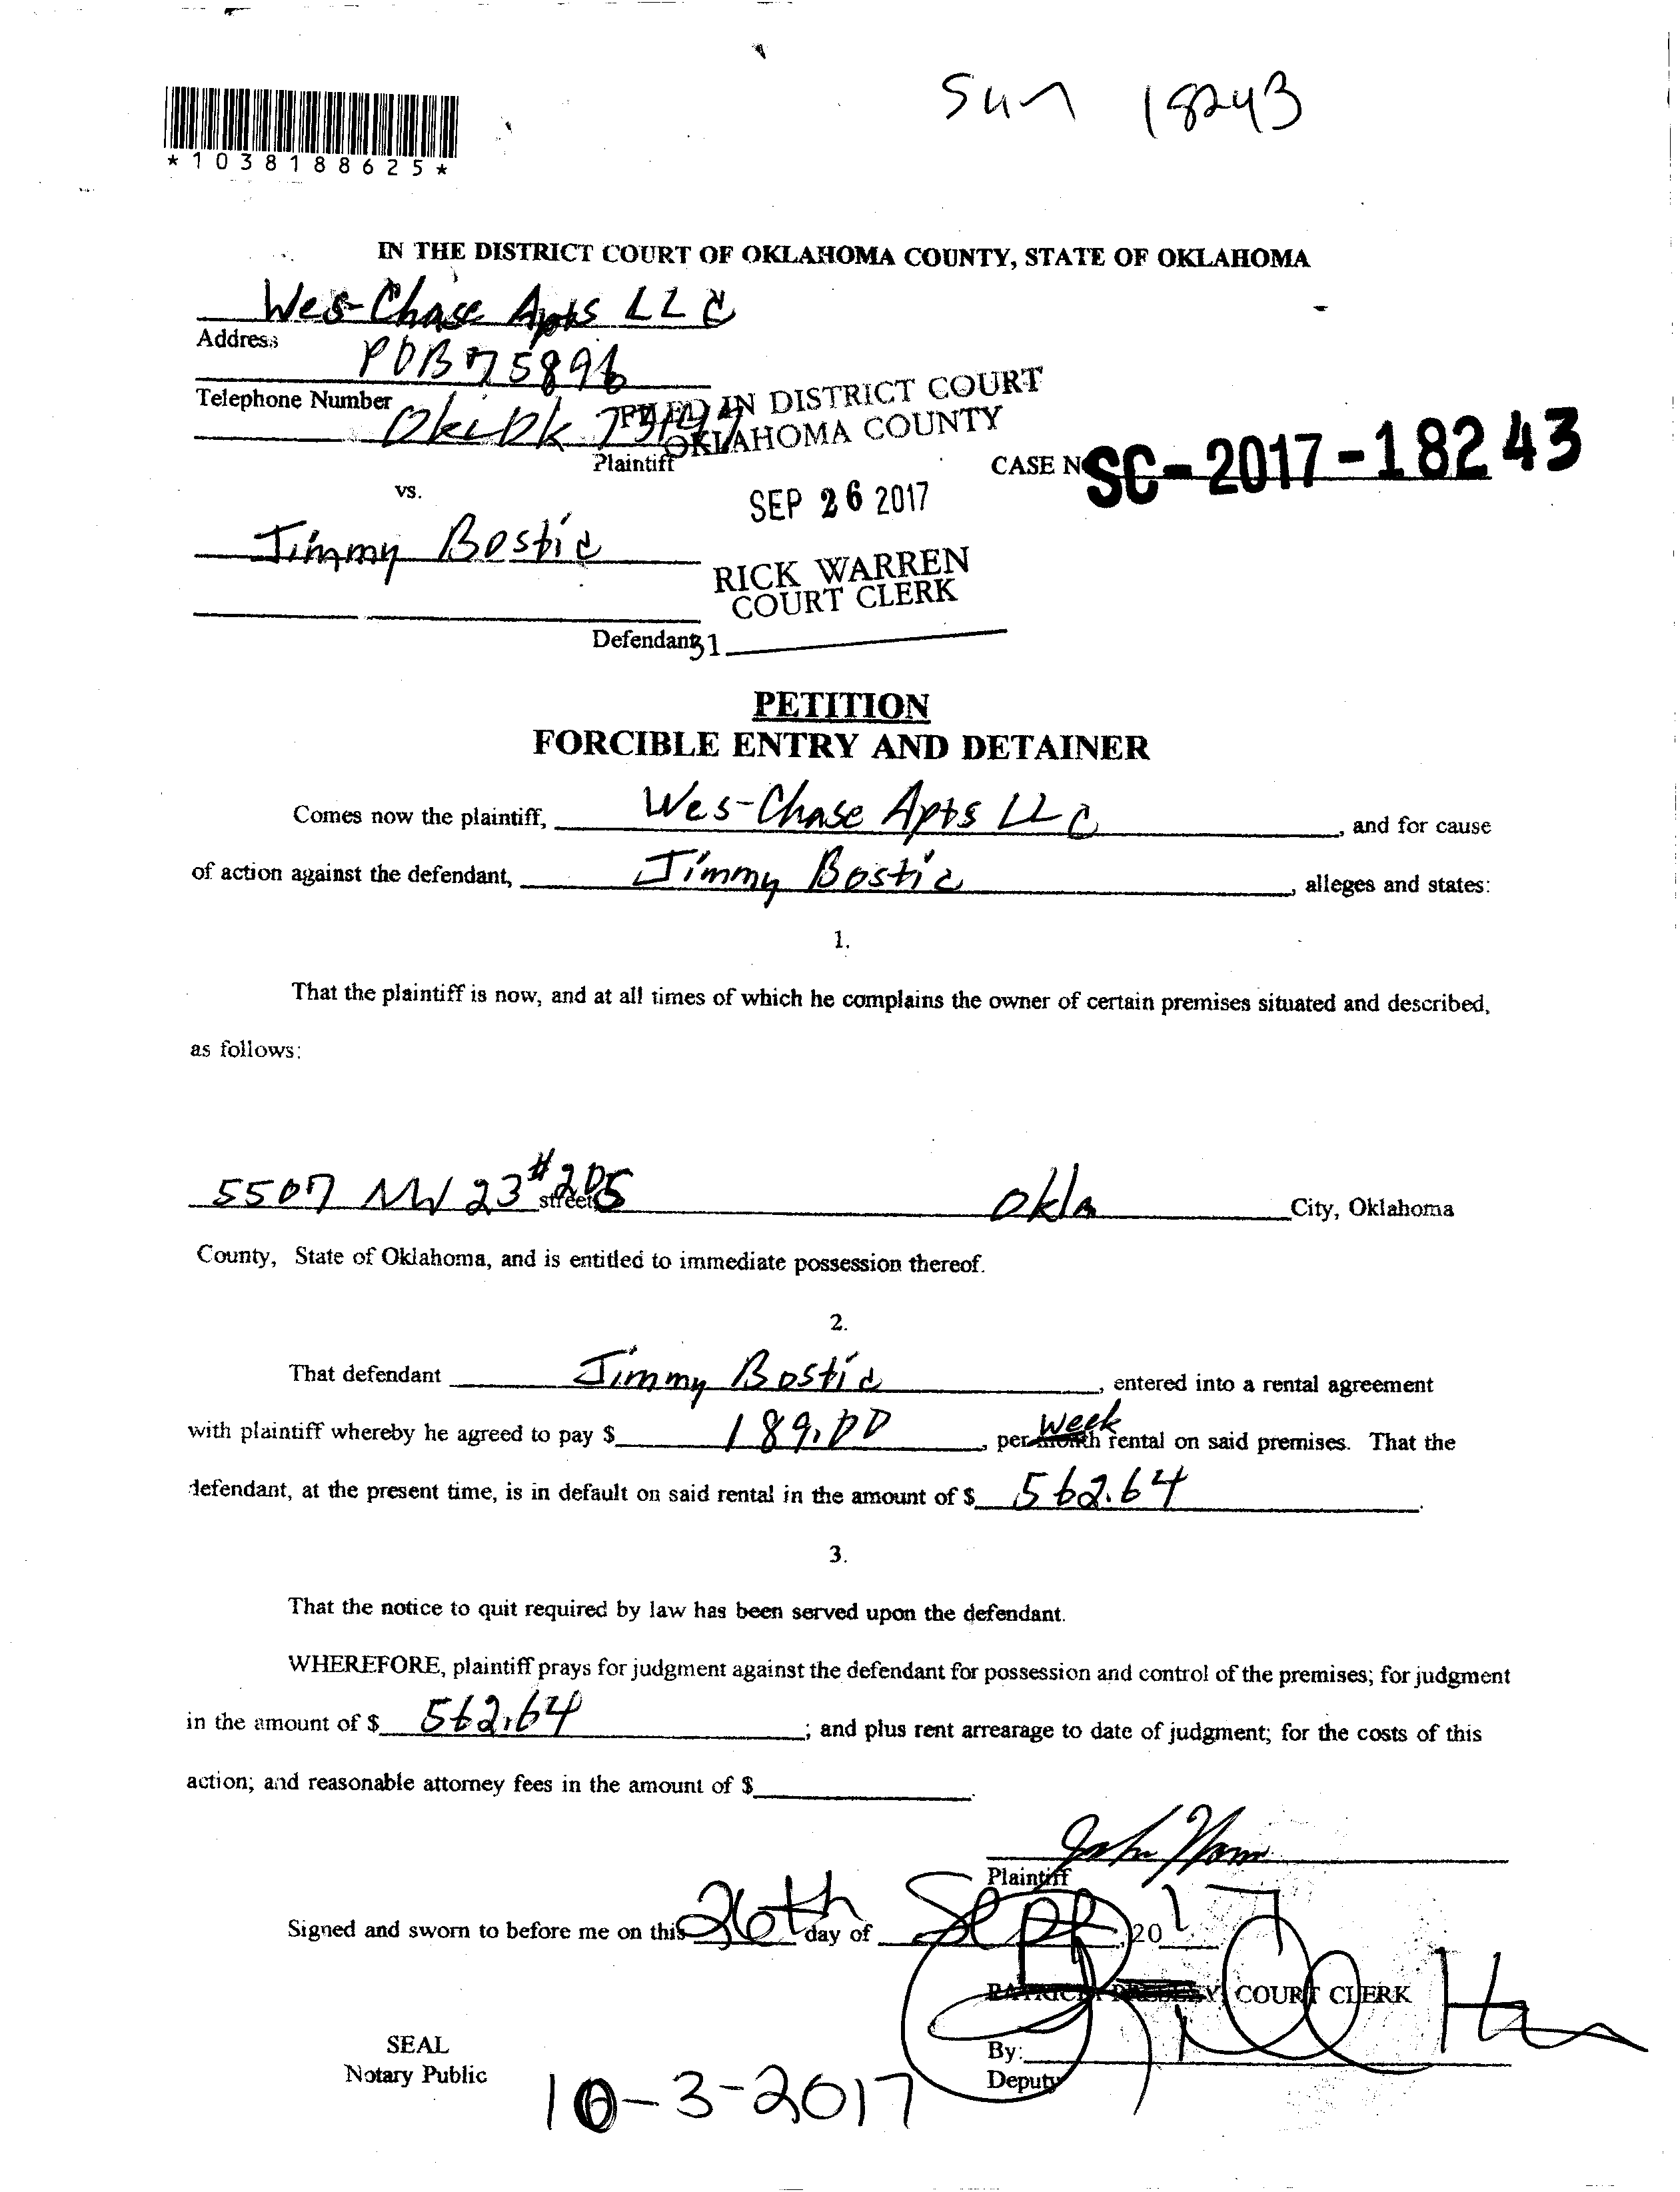 Sun 18243
*1038188625*
IN THE DISTRICT COURT OF OKLAHOMA COUNTY, STATE OF OKLAHOMA
Wes-Chase Apts LLC
Address
POB 75896
Telephone Number
FILED IN DISTRICT COURT
OKLAHOMA COUNTY
Plaintiff
CASE N SC-2017-18243
vs.
SEP 26 2017
Jimmy Bostic
RICK WARREN
COURT CLERK
Defendant
31
PETITION
FORCIBLE ENTRY AND DETAINER
Comes now the plaintiff, Wes-Chase Apts LLC, and for cause
of action against the defendant, Jimmy Bostic, alleges and states:
1.
That the plaintiff is now, and at all times of which he complains the owner of certain premises situated and described,
as follows:
5507 NW 23 #205 street Okla City, Oklahoma
County, State of Oklahoma, and is entitled to immediate possession thereof.
2.
That defendant Jimmy Bostic, entered into a rental agreement
with plaintiff whereby he agreed to pay $ 189.00, per month week rental on said premises. That the
defendant, at the present time, is in default on said rental in the amount of $ 562.64.
3.
That the notice to quit required by law has been served upon the defendant.
WHEREFORE, plaintiff prays for judgment against the defendant for possession and control of the premises; for judgment
in the amount of $ 562.64; and plus rent arrearage to date of judgment; for the costs of this
action; and reasonable attorney fees in the amount of $
Plaintiff
Signed and sworn to before me on this 26th day of Sept, 2017
COURT CLERK
SEAL
Notary Public
By:
Deputy
10-3-2017